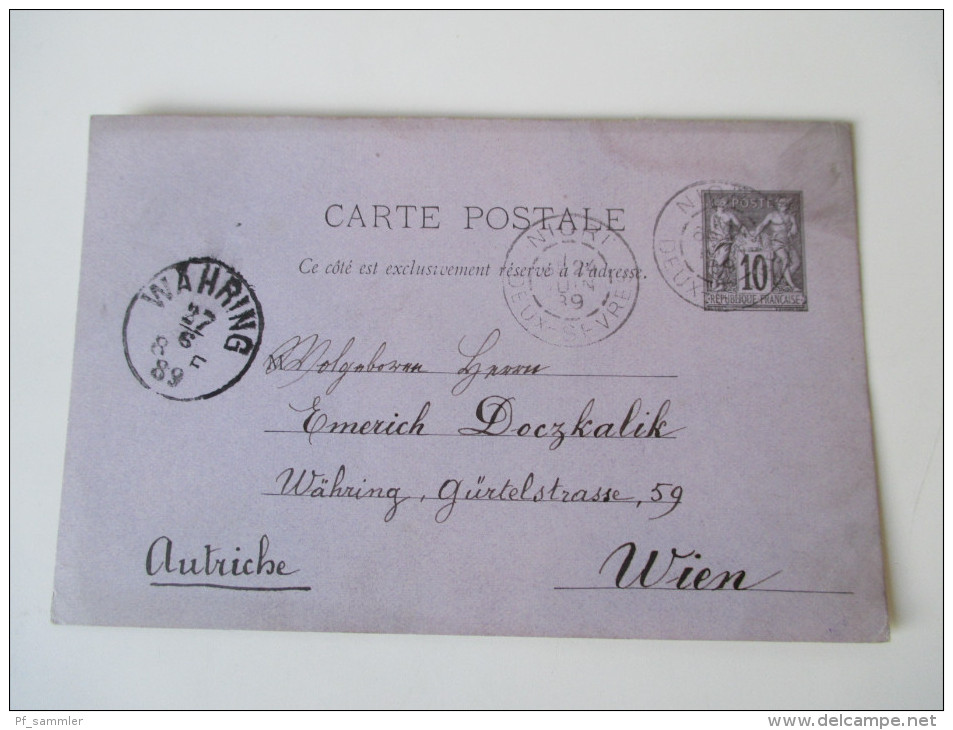 CARTE POSTALE
Ce côté est exclusivement réservé à l'adresse.
NIORT
JUIN
89
DEUX-SEVRES
NIORT
DEUX-
POSTE
10
REPUBLIQUE FRANÇAISE
WÄHRING
27
6
8 F
89
Wolgeboren Herrn
Emerich Doczkalik
Währing, Gürtelstrasse, 59
Wien
Autriche
Pf_sammler
http://www.delcampe.net